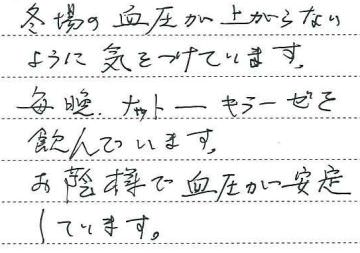 冬場の血圧が上がらない
ように気をつけています。
毎晩、ナットーキナーゼを
飲んでいます。
お陰様で血圧が安定
しています。